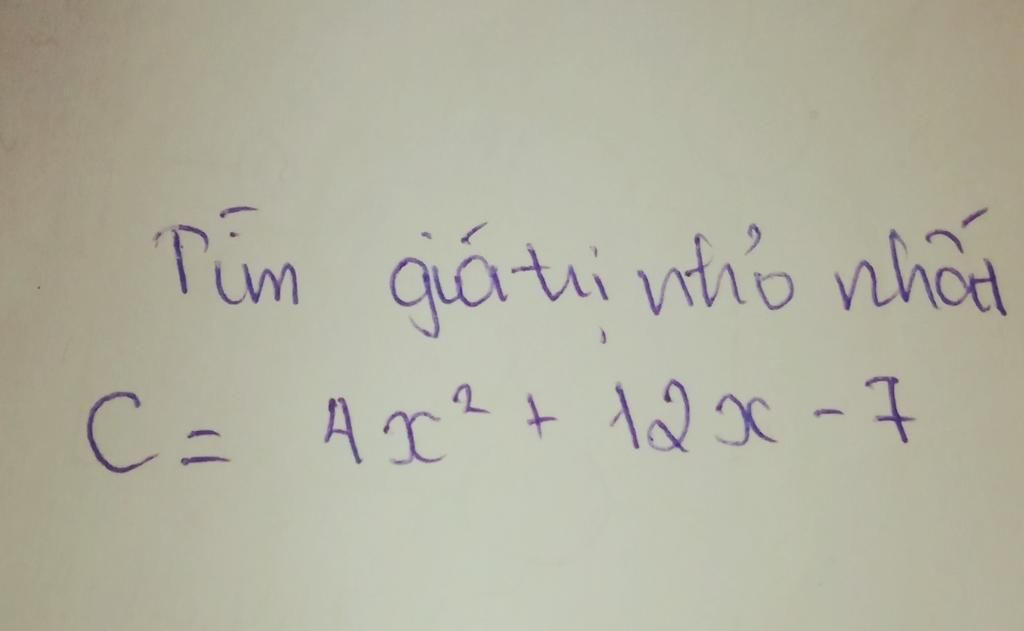 Tìm giá trị nhỏ nhất
C = 4x² + 12x - 7